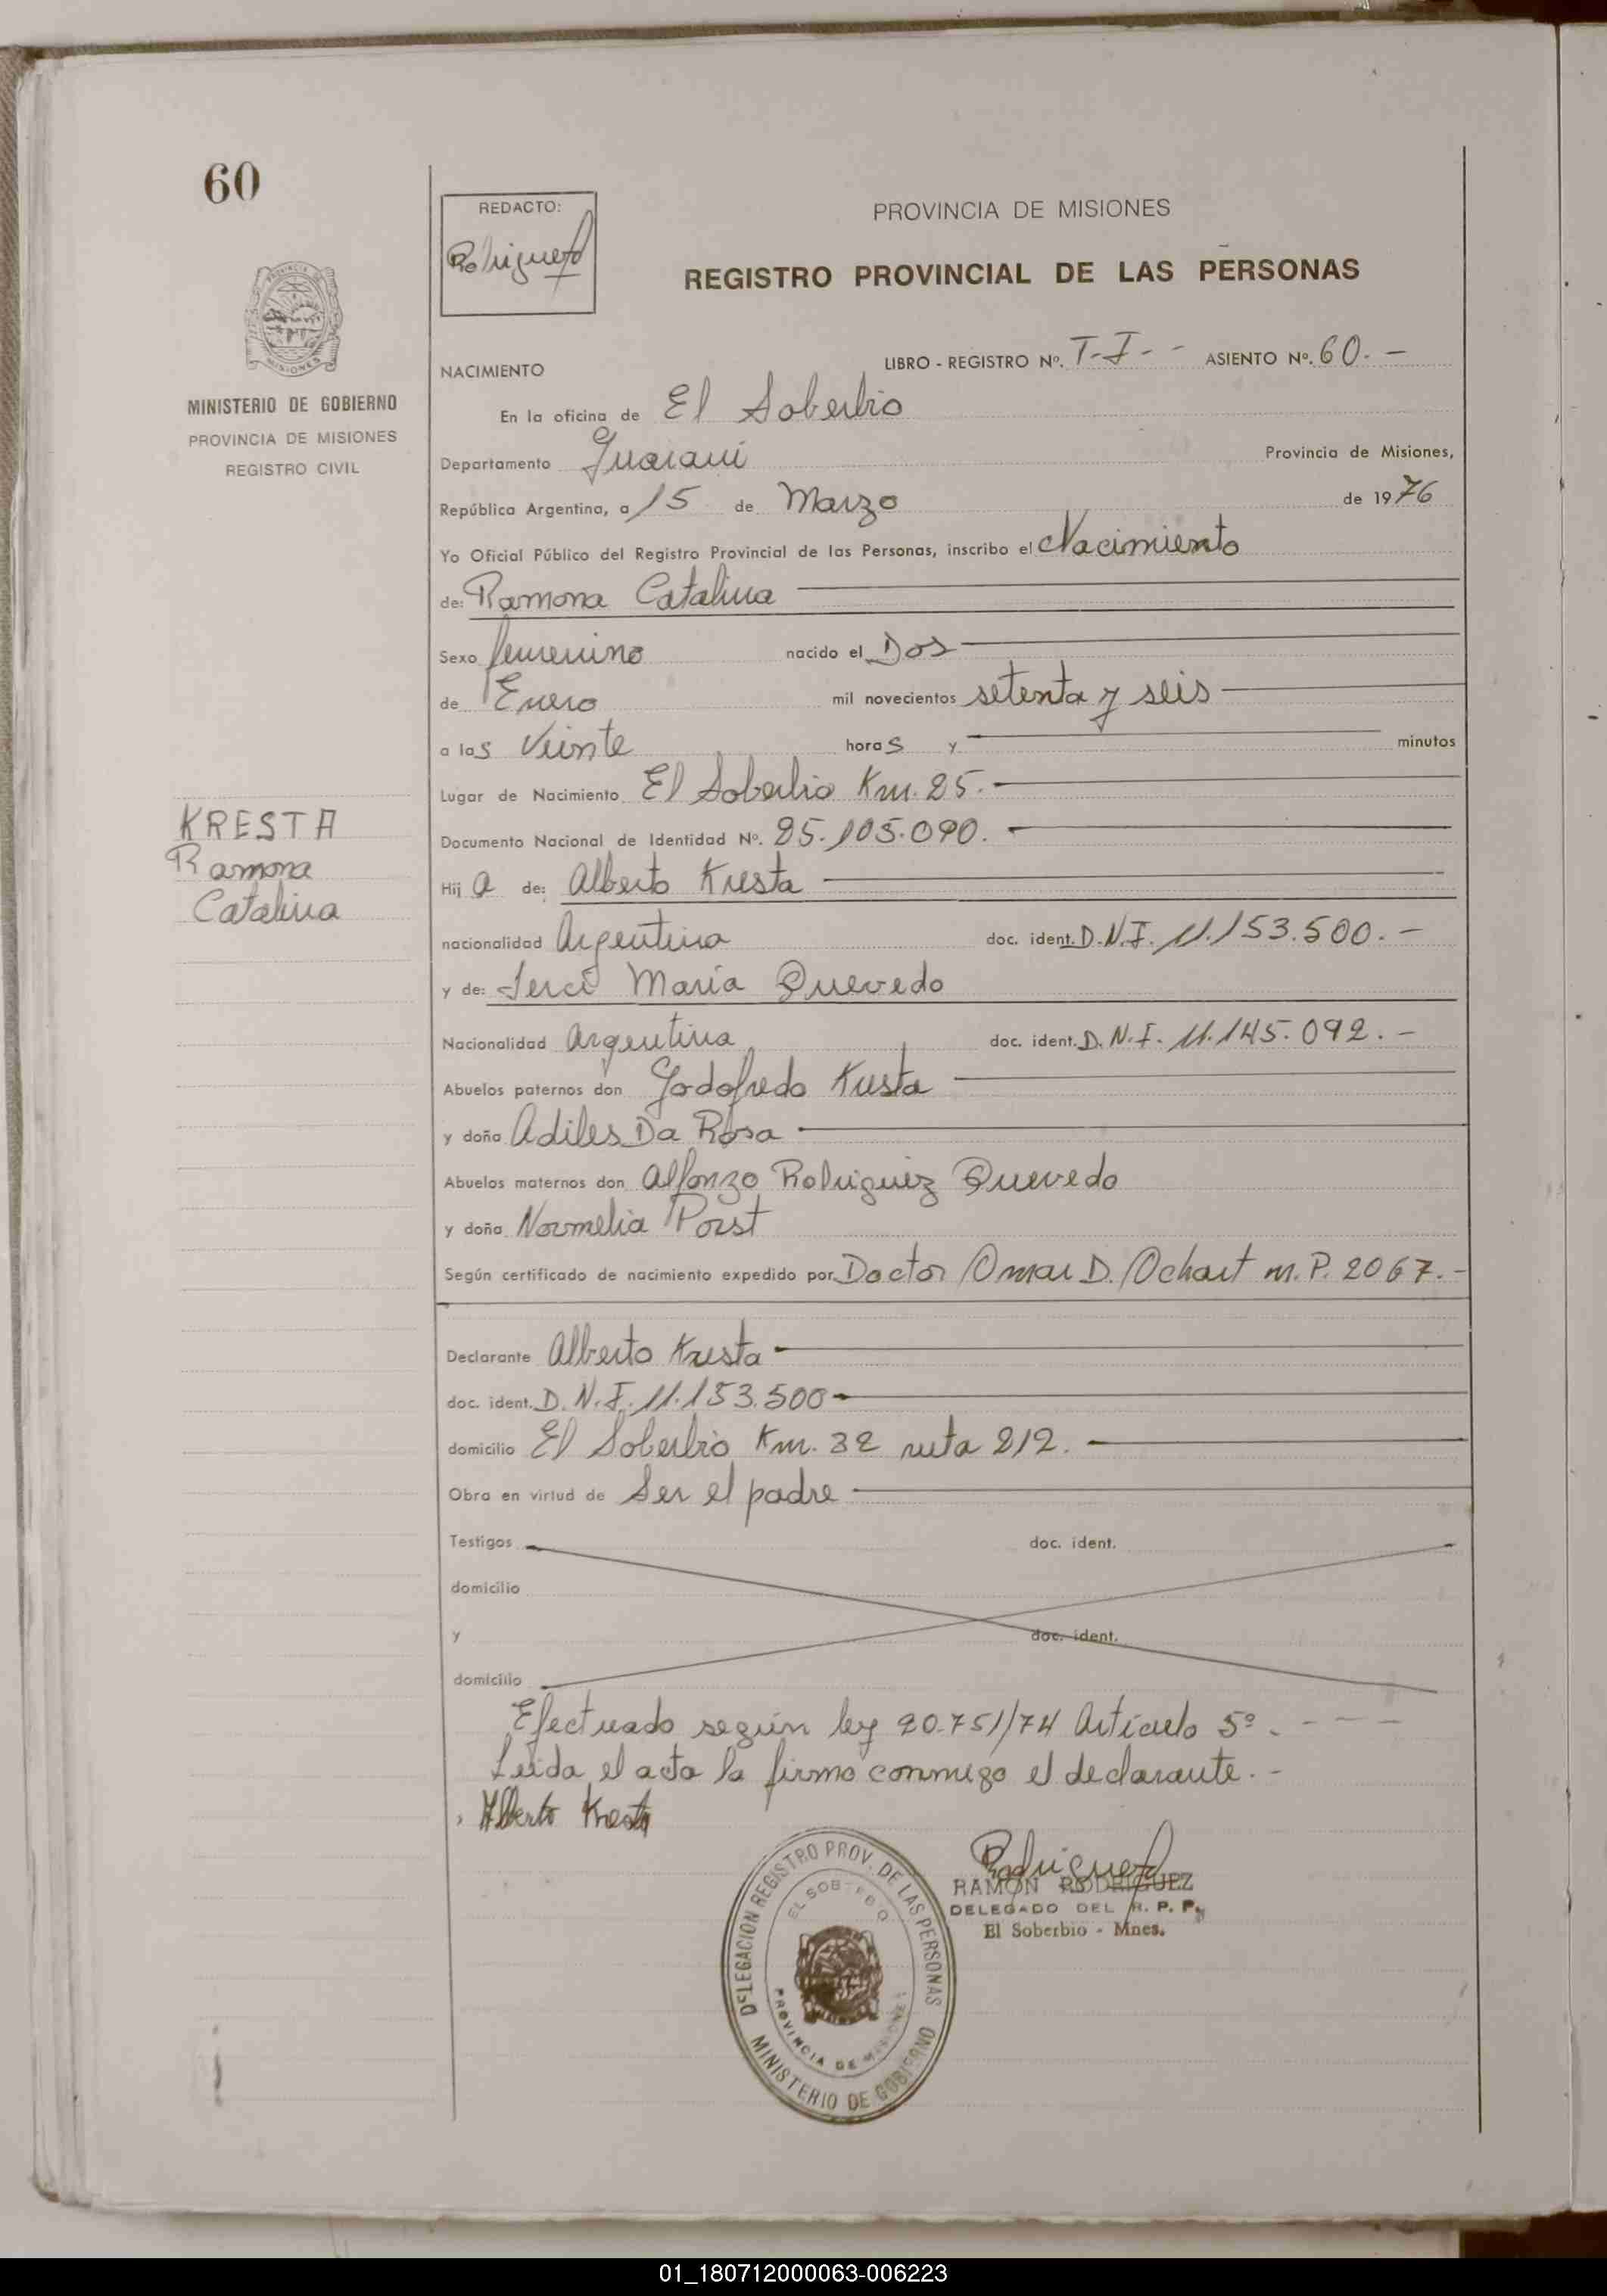 60
REDACTO:
Rodriguez
PROVINCIA DE MISIONES
REGISTRO PROVINCIAL DE LAS PERSONAS
MINISTERIO DE GOBIERNO
PROVINCIA DE MISIONES
REGISTRO CIVIL
NACIMIENTO
LIBRO - REGISTRO Nº. T-I-- ASIENTO Nº. 60.-
En la oficina de El Soberbio
Departamento Guarani Provincia de Misiones,
República Argentina, a 15 de Marzo de 1976
Yo Oficial Público del Registro Provincial de las Personas, inscribo el Nacimiento
de: Ramona Catalina
Sexo femenino nacido el Dos
de Enero mil novecientos setenta y seis
a las Veinte horas y minutos
Lugar de Nacimiento El Soberbio Km. 25.-
KRESTA
Ramona
Catalina
Documento Nacional de Identidad Nº. 25.105.090.-
Hij a de: Alberto Kresta
nacionalidad Argentina doc. ident. D.N.I. 11.153.500.-
y de: María Quevedo
Nacionalidad Argentina doc. ident. D.N.I. 11.145.092.-
Abuelos paternos don Godofredo Kresta
y doña Adiles Da Rosa
Abuelos maternos don Alfonzo Rodriguez Quevedo
y doña Normelia Porst
Según certificado de nacimiento expedido por Doctor Omar D. Ochart m.P. 2067.-
Declarante Alberto Kresta
doc. ident. D.N.I. 11.153.500-
domicilio El Soberbio Km. 32 ruta 212.-
Obra en virtud de Ser el padre
Testigos doc. ident.
domicilio
y doc. ident.
domicilio
Efectuado según ley 20.751/74 Artículo 5º.----
Leida el acta la firma conmigo el declarante.-
Alberto Kresta
Rodriguez
RAMON RODRIGUEZ
DELEGADO DEL R. P. P.
El Soberbio - Mnes.
DELEGACION REGISTRO PROV. DE LAS PERSONAS
EL SOBERBIO
PROVINCIA DE MISIONES
MINISTERIO DE GOBIERNO
01_180712000063-006223